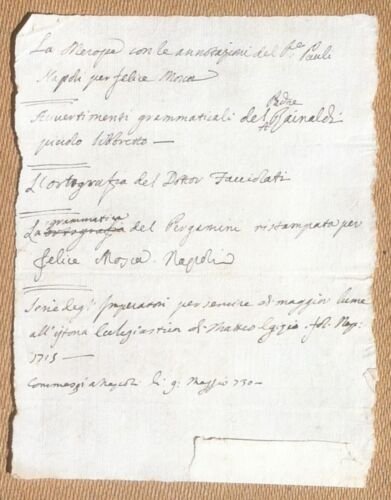 La Merope con le annotazioni del P.re Pauli
Napoli per felice Mosca
Avvertimenti grammaticali del Padre Rainaldi
piccolo libbretto —
L'ortografia del Dottor Facciolati
La grammatica del Pergamini ristampata per
felice Mosca. Napoli
Serie degl' Imperatori per servire di maggior lume
all'istoria Ecclesiastica di Matteo Egizio. fol. Nap:
1713 —
Commessi a Napoli li 9: Maggio 730 —